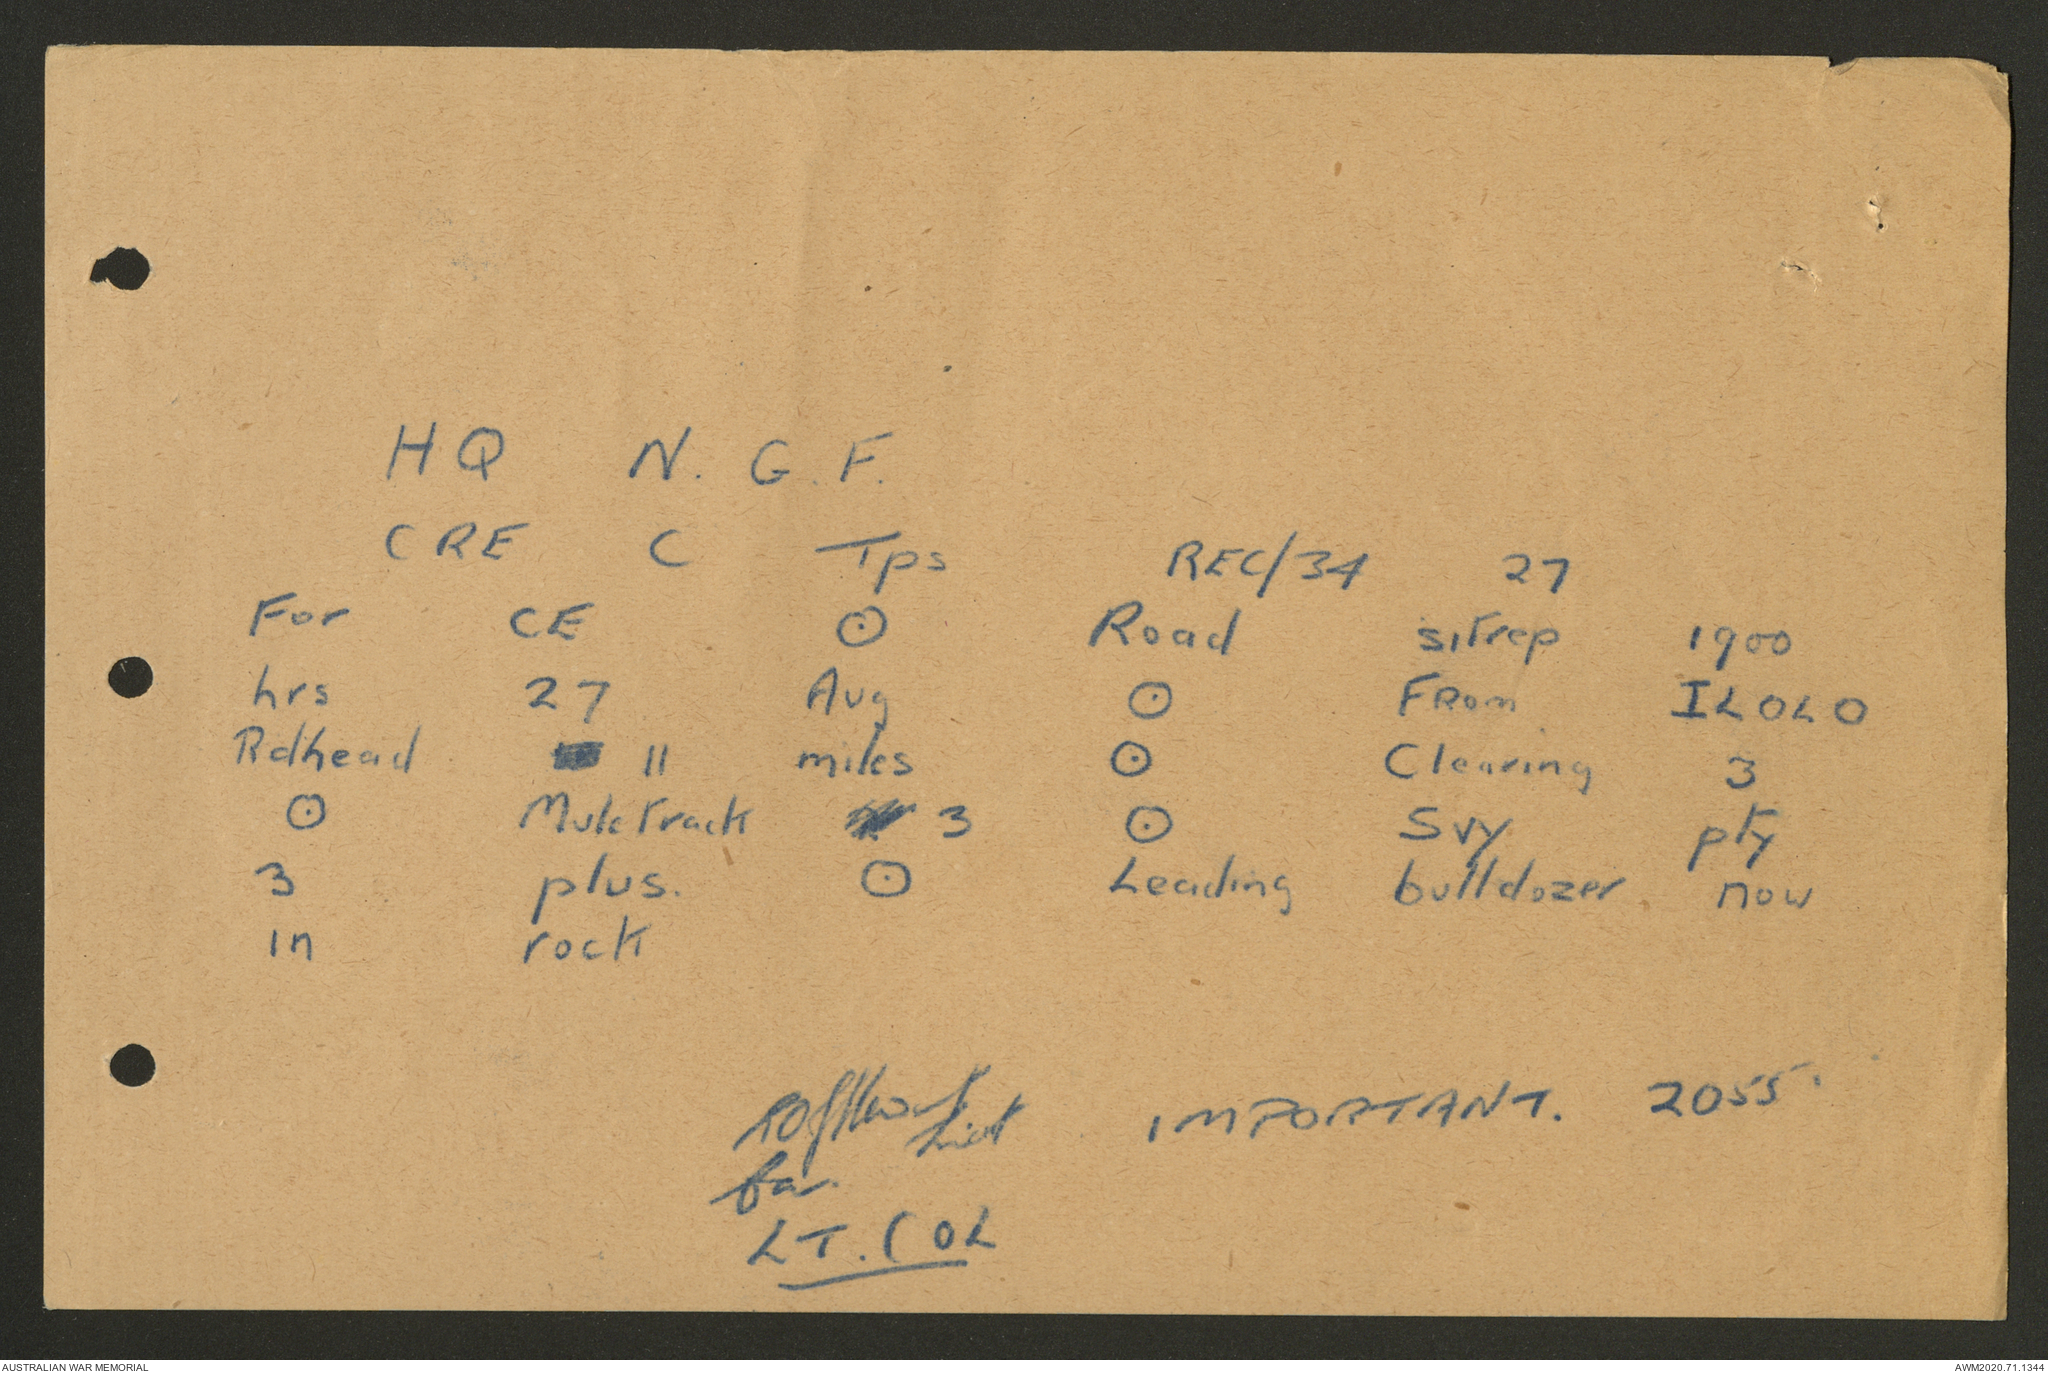 HQ N. G. F.
CRE C Tps REC/34 27
For CE ⊙ Road sitrep 1900
hrs 27 Aug ⊙ From ILOLO
Rdhead 11 miles ⊙ Clearing 3
⊙ Muletrack 3 ⊙ Svy pty
3 plus. ⊙ Leading bulldozer now
in rock
IMPORTANT. 2055.
Lieut
for
LT. COL
AUSTRALIAN WAR MEMORIAL
AWM2020.71.1344